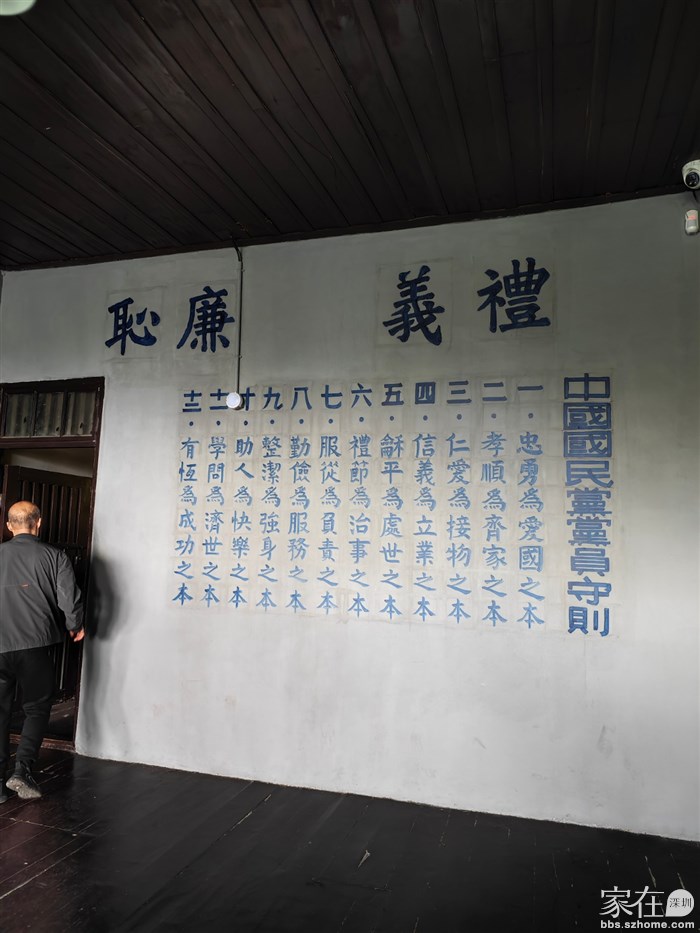 禮義廉恥
中國國民黨黨員守則
一·忠勇為愛國之本
二·孝順為齊家之本
三·仁愛為接物之本
四·信義為立業之本
五·龢平為處世之本
六·禮節為治事之本
七·服從為負責之本
八·勤儉為服務之本
九·整潔為強身之本
十·助人為快樂之本
十一·學問為濟世之本
十二·有恆為成功之本
家在深圳
bbs.szhome.com